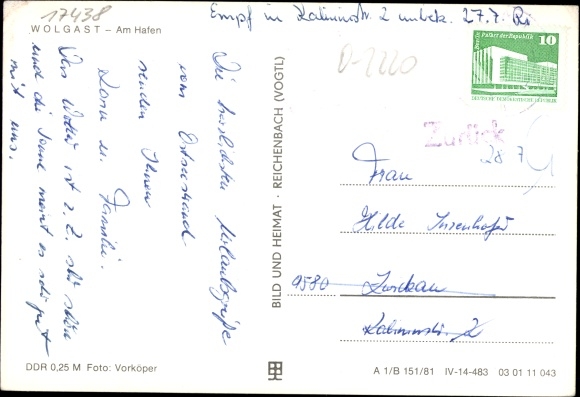 17438
Empf in Kalininstr. 2 unbek. 27.7. Ri
WOLGAST – Am Hafen
D-1220
Berlin Palast der Republik 10
DEUTSCHE DEMOKRATISCHE REPUBLIK
Zurück
28 7
Die herzlichsten Urlaubsgrüße
vom Ostseestrand
senden Ihnen
Dora u. Familie.
Das Wetter ist z. Z. sehr schön
und die Sonne meint es sehr gut
mit uns.
BILD UND HEIMAT · REICHENBACH (VOGTL)
Frau
Hilde
9580 Zwickau
Kalininstr. 2
DDR 0,25 M Foto: Vorköper
A 1/B 151/81 IV-14-483 03 01 11 043